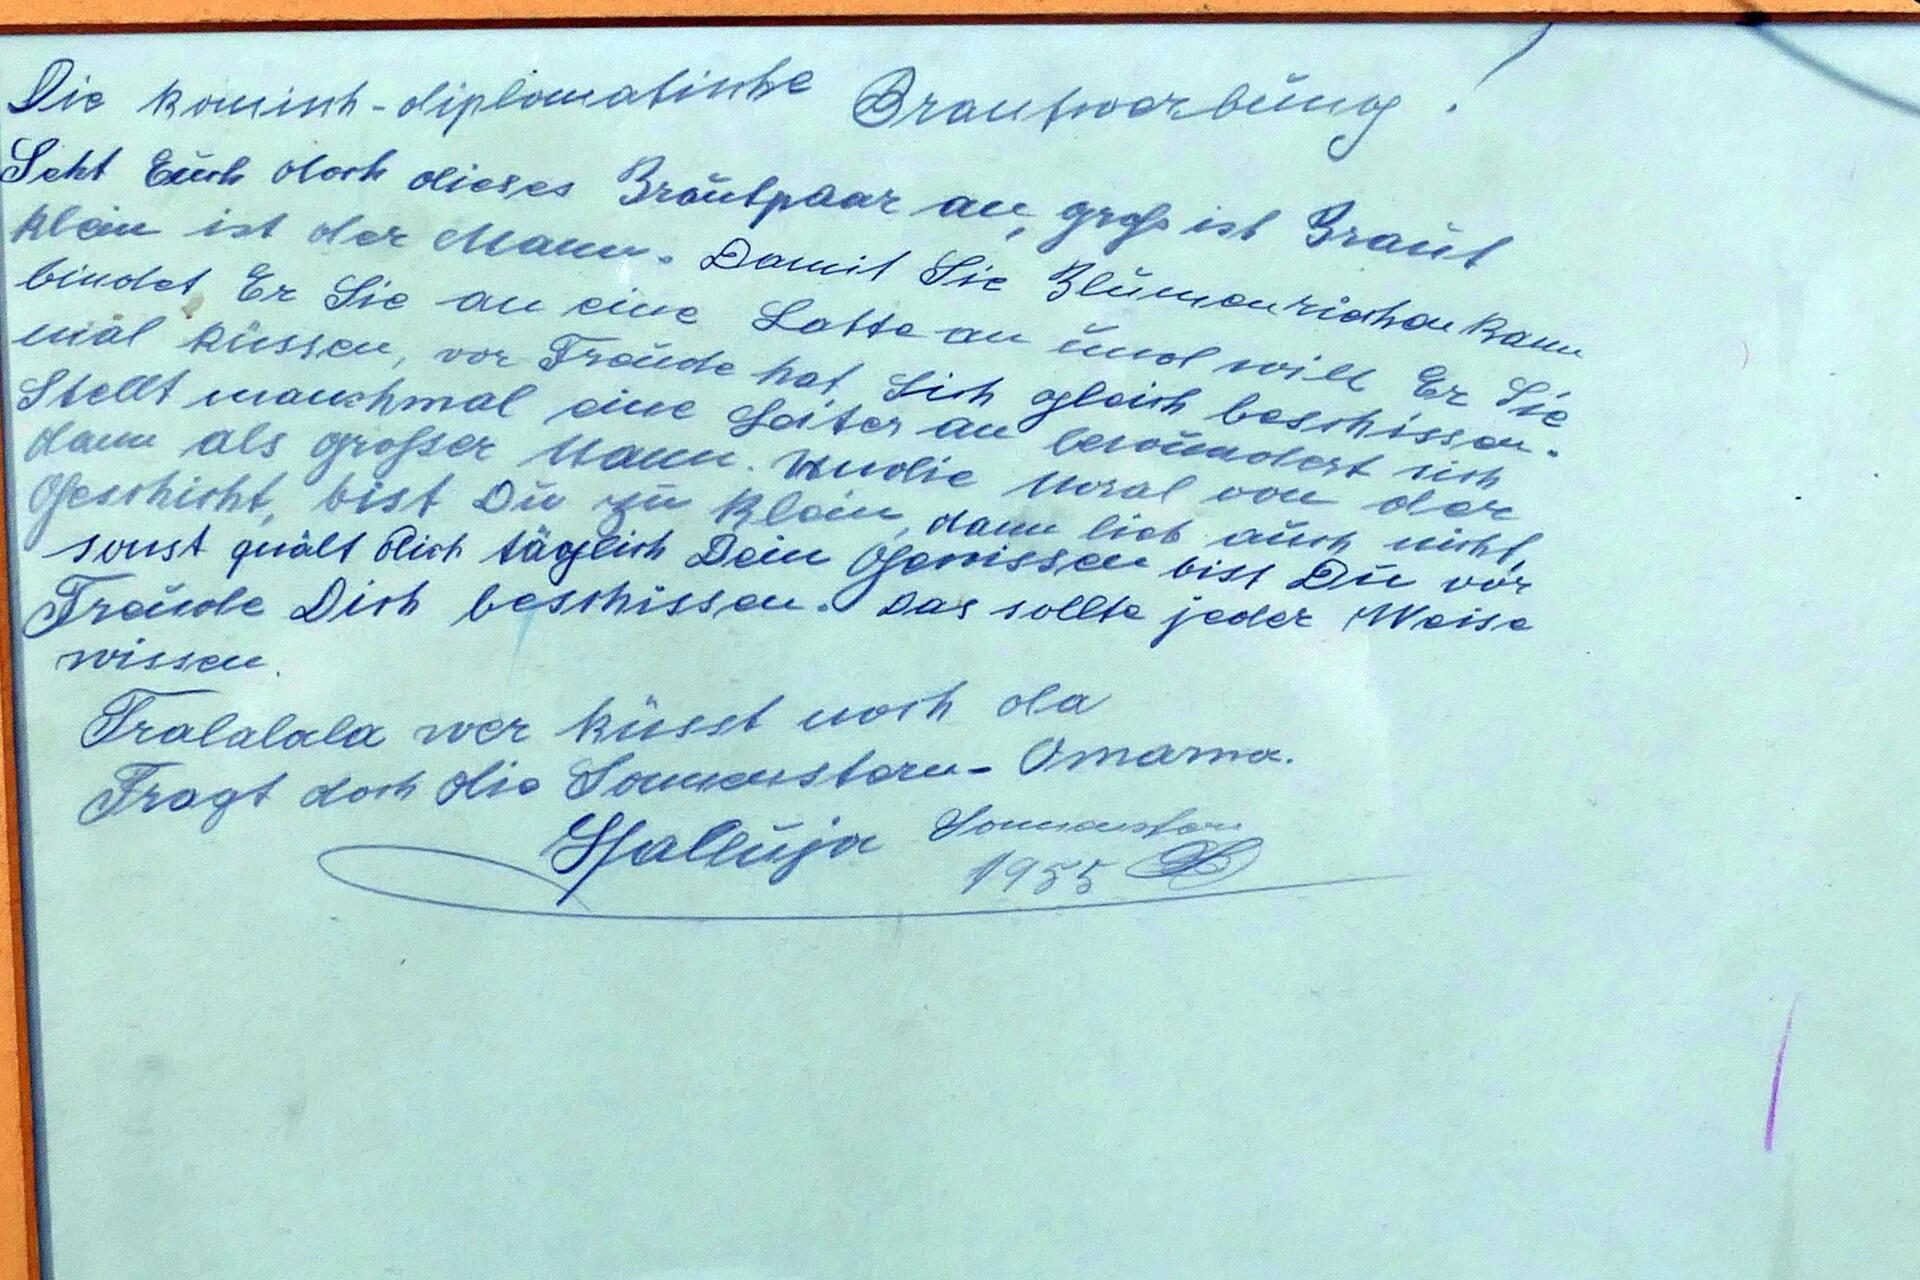 Die komisch-diplomatische Brautwerbung!
Seht Euch doch dieses Brautpaar an, groß ist Braut
klein ist der Mann. Damit Sie Blumen riechen kann
bindet Er Sie an eine Latte an und will Er Sie
mal küssen, vor Freude hat Sich gleich beschissen.
Stellt manchmal eine Leiter an bewundert sich
dann als großer Mann. Undie Moral von der
Geschicht, bist Du zu klein, dann lieb auch nicht,
sonst quält Dich täglich Dein Gewissen bist Du vor
Freude Dich beschissen. Das sollte jeder Weise
wissen.
Tralalala wer küsst noch da
Fragt doch die Sonnenstern-Omama.
Halluja Sonnenstern
1955